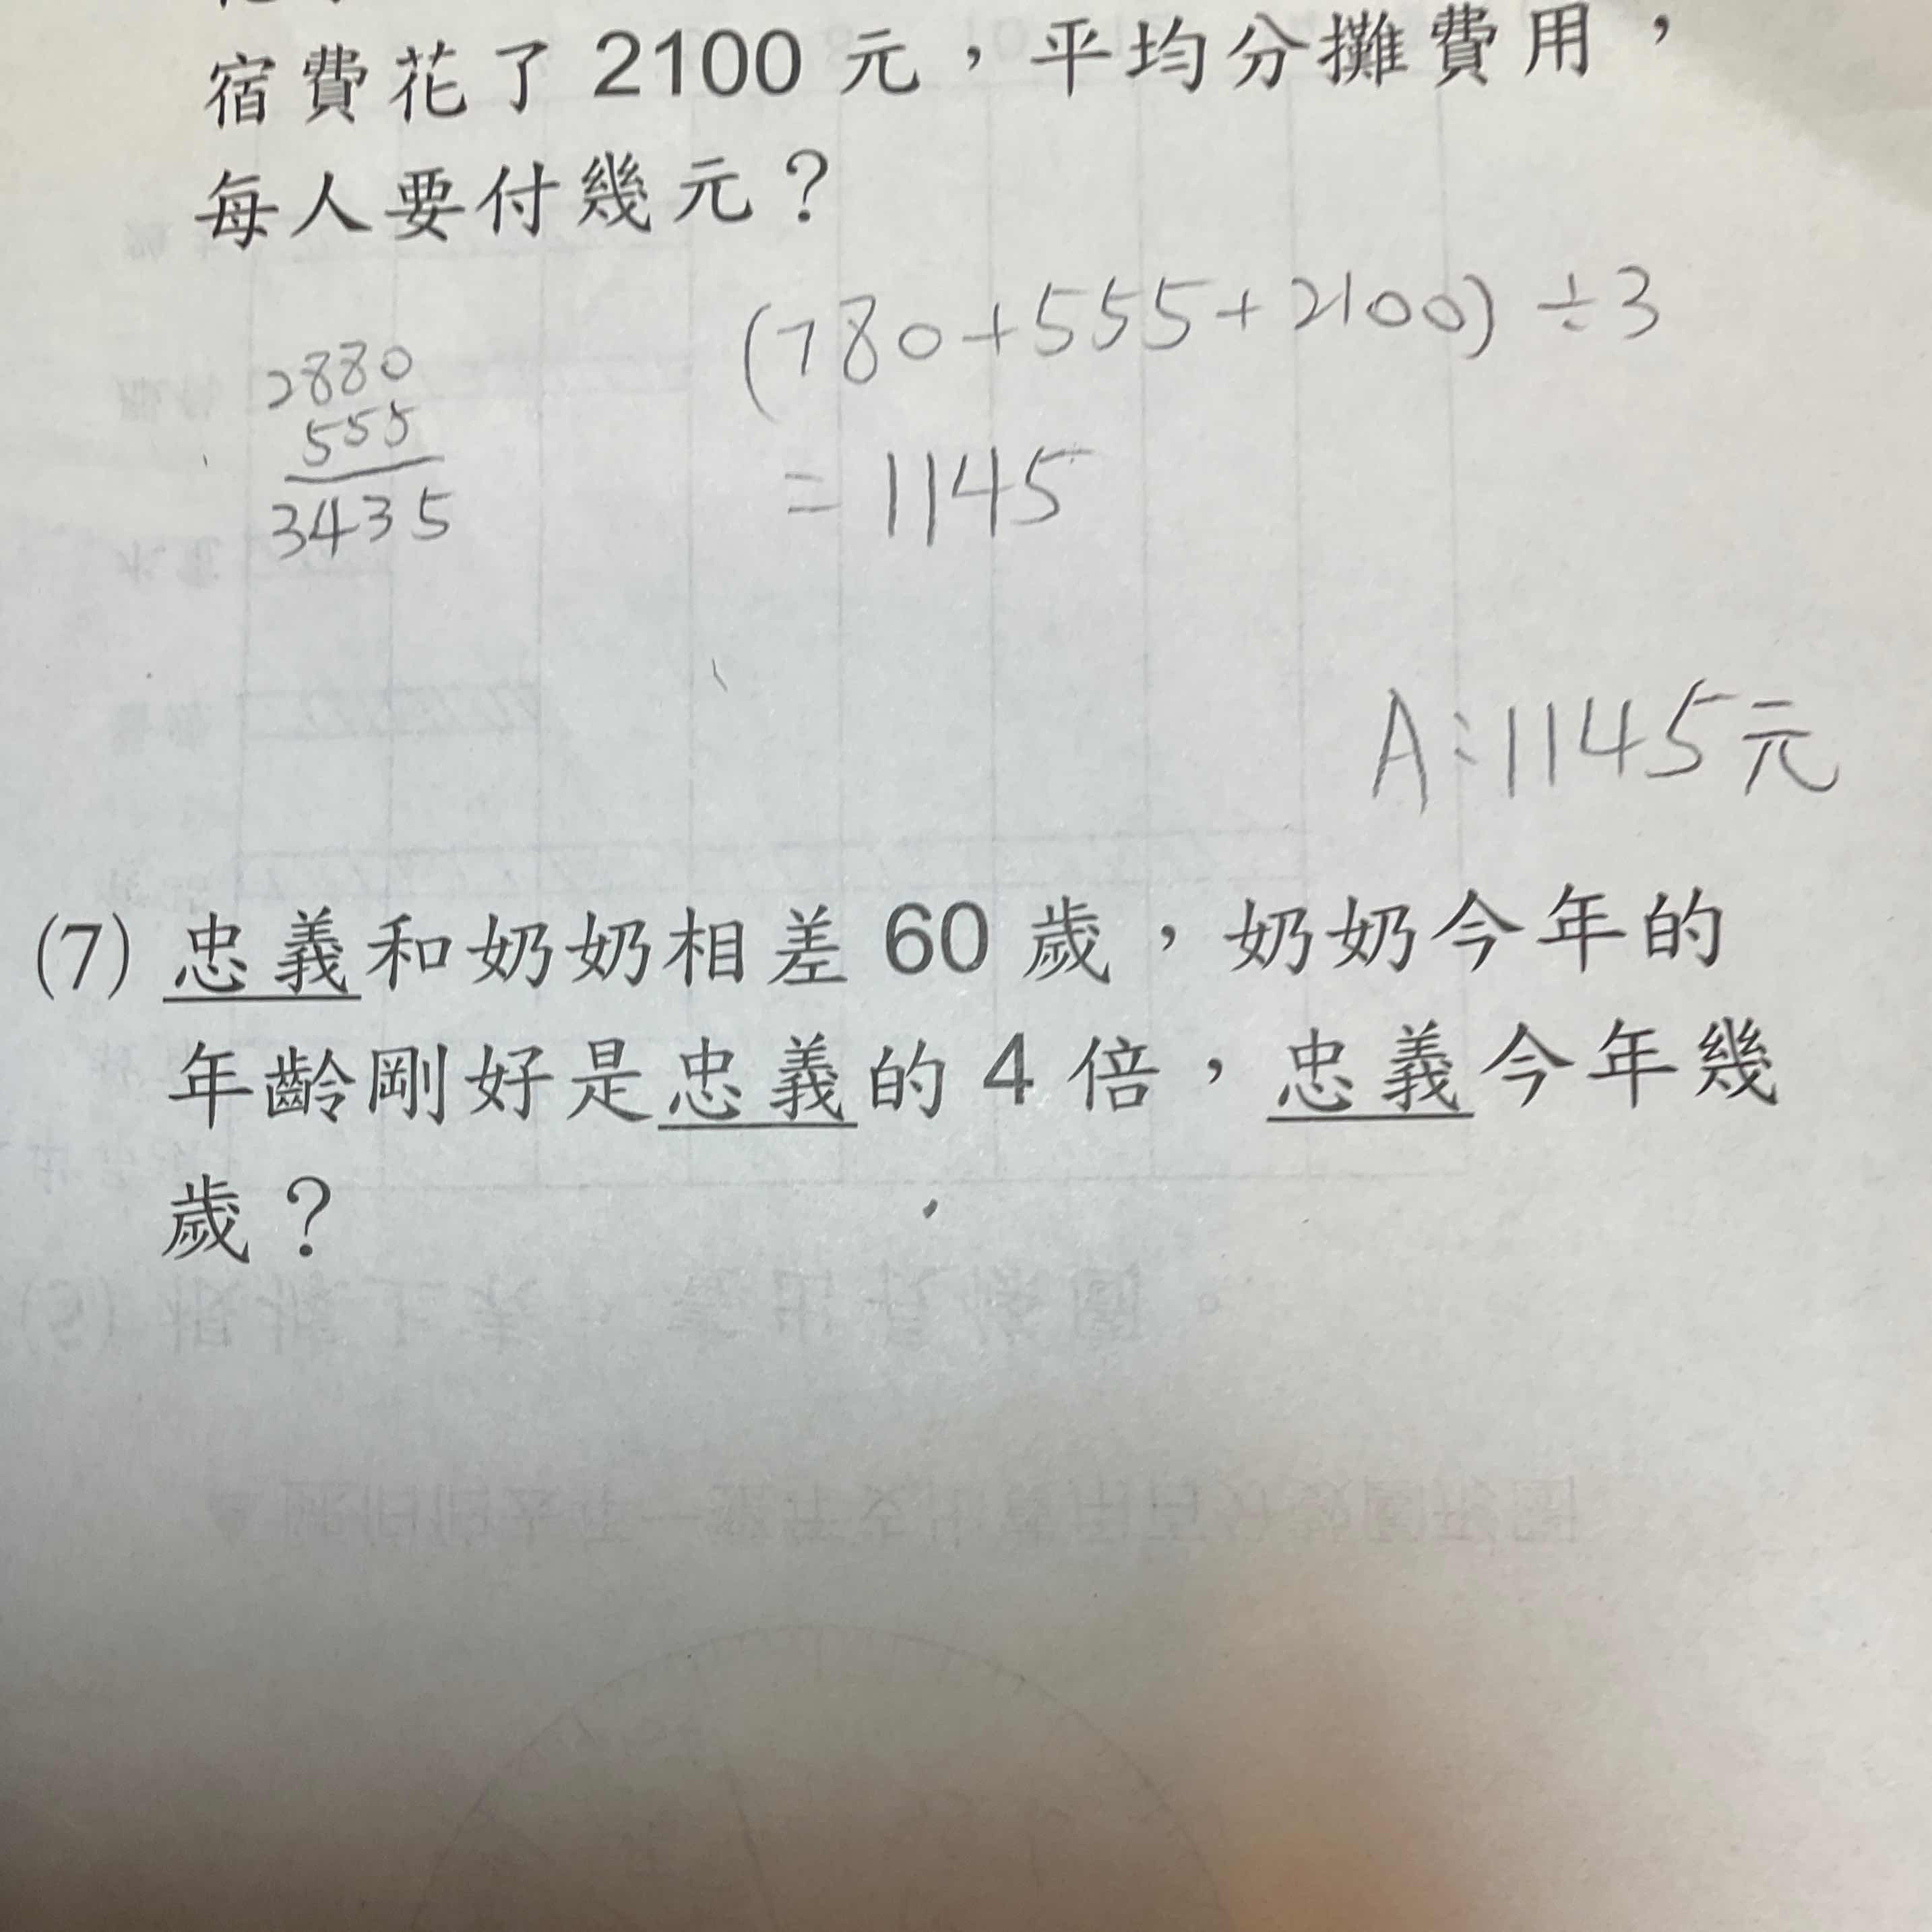 宿費花了 2100 元，平均分攤費用，
每人要付幾元？
(780+555+2100)÷3
2880
555
3435
=1145
A:1145元
(7) 忠義和奶奶相差 60 歲，奶奶今年的
年齡剛好是忠義的 4 倍，忠義今年幾
歲？